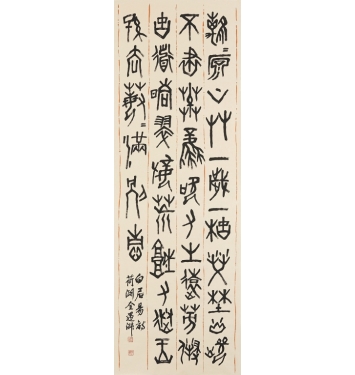 離〻原上艸一歲一枯榮埜火燒
不盡春風吹又生遠芳侵
古道晴翠接荒城又送王
孫去萋〻滿別情
白居易詩